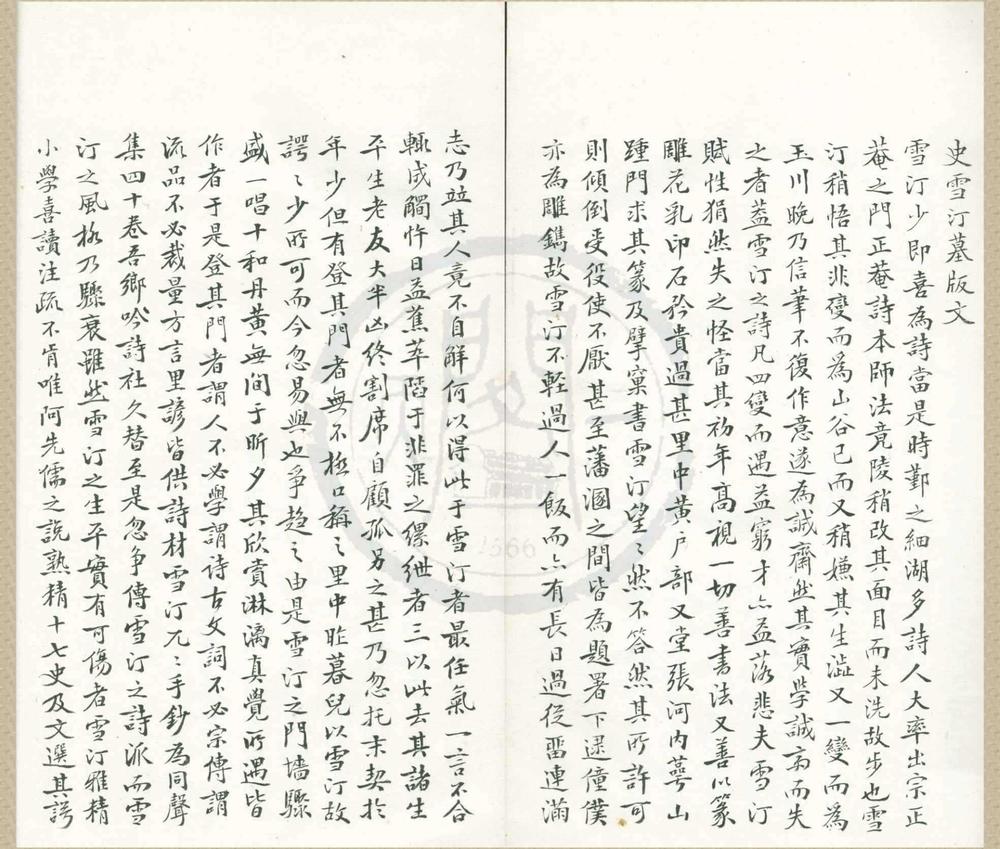 史雪汀墓版文
雪汀少即喜為詩當是時鄞之細湖多詩人大率出宗正
菴之門正菴詩本師法竟陵稍改其面目而未洗故步也雪
汀稍悟其非變而為山谷已而又稍嫌其生澁又一變而為
玉川晚乃信筆不復作意遂為誠齋然其實學誠齋而失
之者蓋雪汀之詩凡四變而遇益窮才亦益落悲夫雪汀
賦性狷然失之怪當其初年高視一切善書法又善以篆
雕花乳印石矜貴過甚里中黃戶部又堂張河內蕚山
踵門求其篆及擘窠書雪汀望〻然不答然其所許可
則傾倒受役使不厭甚至藩溷之間皆為題署下逮僮僕
亦為雕鐫故雪汀不輕過人一飯而亦有長日過從畱連滿
志乃竝其人竟不自解何以得此于雪汀者最任氣一言不合
輒成觸忤日益蕉萃陷于非罪之縲紲者三以此去其諸生
平生老友大半凶終割席自顧孤另之甚乃忽托末契於
年少但有登其門者無不極口稱之里中昨暮兒以雪汀故
諤〻少所可而今忽易與也爭趋之由是雪汀之門墻驟
盛一唱十和丹黃無间于昕夕其欣賞淋漓真覺所遇皆
作者于是登其門者謂人不必學謂诗古文詞不必宗傳謂
流品不必裁量方言里諺皆供詩材雪汀兀〻手鈔為同聲
集四十卷吾鄉吟詩社久替至是忽争傳雪汀之詩派而雪
汀之風格乃驟衰雖然雪汀之生平實有可傷者雪汀雅精
小學喜讀注疏不肯唯阿先儒之說熟精十七史及文選其諤
1566